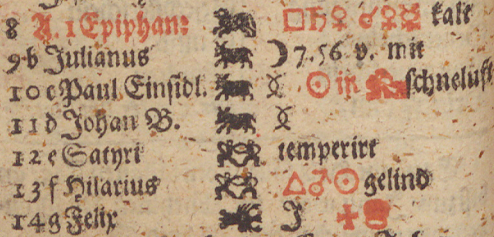 8 A. 1 Epiphan: □♄♀ ☌♀☿ kalt
9 b Julianus ☽ 7. 56 v. mit
10 c Paul Einsidl. ☉ in schneluft
11 d Johan B.
12 e Satyri temperirt
13 f Hilarius △♂☉ gelind
14 g Felix